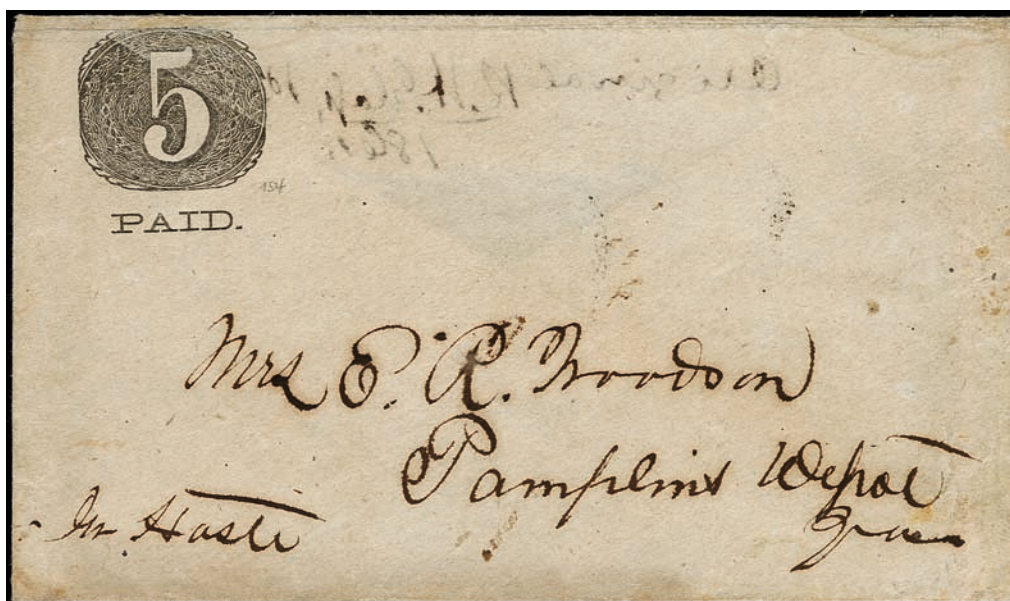 5
PAID.
154
Mrs E. R. Woodson
Pamplins Depot
In Haste